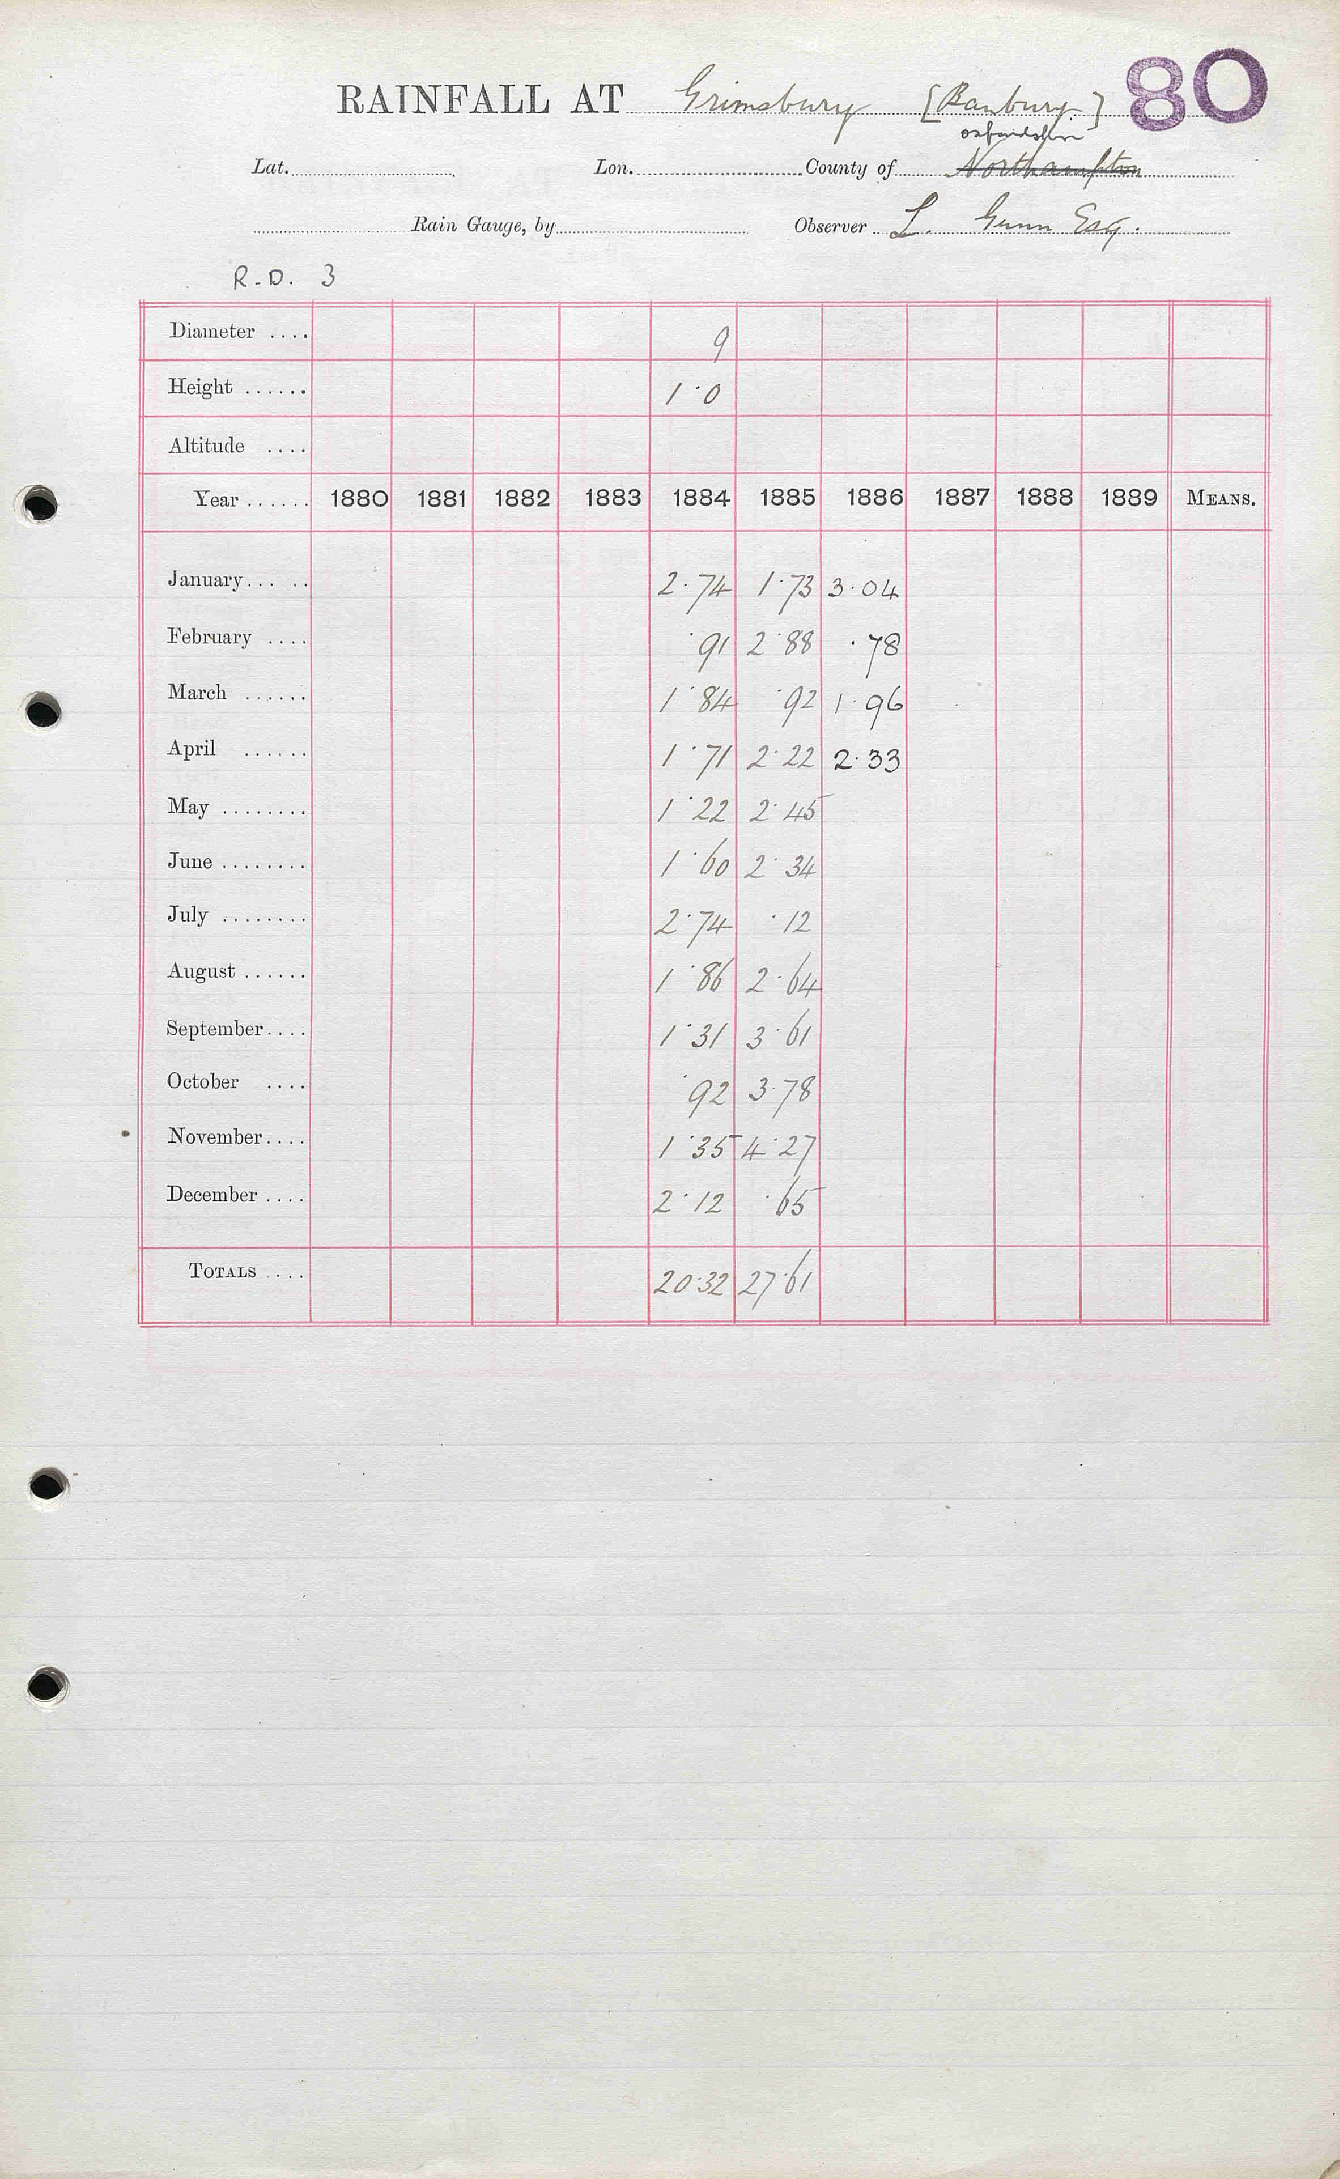 80
RAINFALL AT Grimsbury [Banbury.]
Oxfordshire
Lat. Lon. County of Northampton
Rain Gauge, by Observer L. Gunn Esq.
R.D. 3
Diameter .... 9
Height ...... 1·0
Altitude ....
Year ...... 1880 1881 1882 1883 1884 1885 1886 1887 1888 1889 MEANS.
January... .. 2·74 1·73 3·04
February .... ·91 2·88 ·78
March ...... 1·84 ·92 1·96
April ...... 1·71 2·22 2·33
May ........ 1·22 2·45
June ........ 1·60 2·34
July ........ 2·74 ·12
August ...... 1·86 2·64
September.... 1·31 3·61
October .... ·92 3·78
November.... 1·35 4·27
December .... 2·12 ·65
TOTALS .... 20·32 27·61